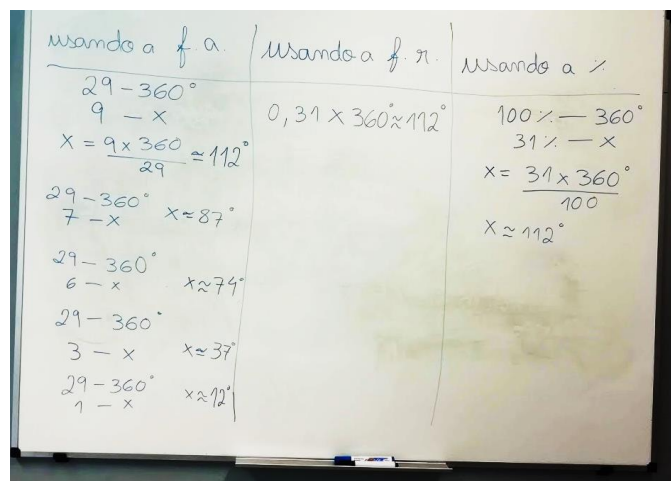 usando a f.a.
29 – 360°
9 – x
x = 9 x 360
29
≃ 112°
29 – 360°
7 – x x ≃ 87°
29 – 360°
6 – x x ≈ 74°
29 – 360°
3 – x x ≃ 37°
29 – 360°
1 – x x ≈ 12°
usando a f.r.
0,31 x 360° ≈ 112°
usando a %
100% — 360°
31% — x
x = 31 x 360°
100
x ≈ 112°